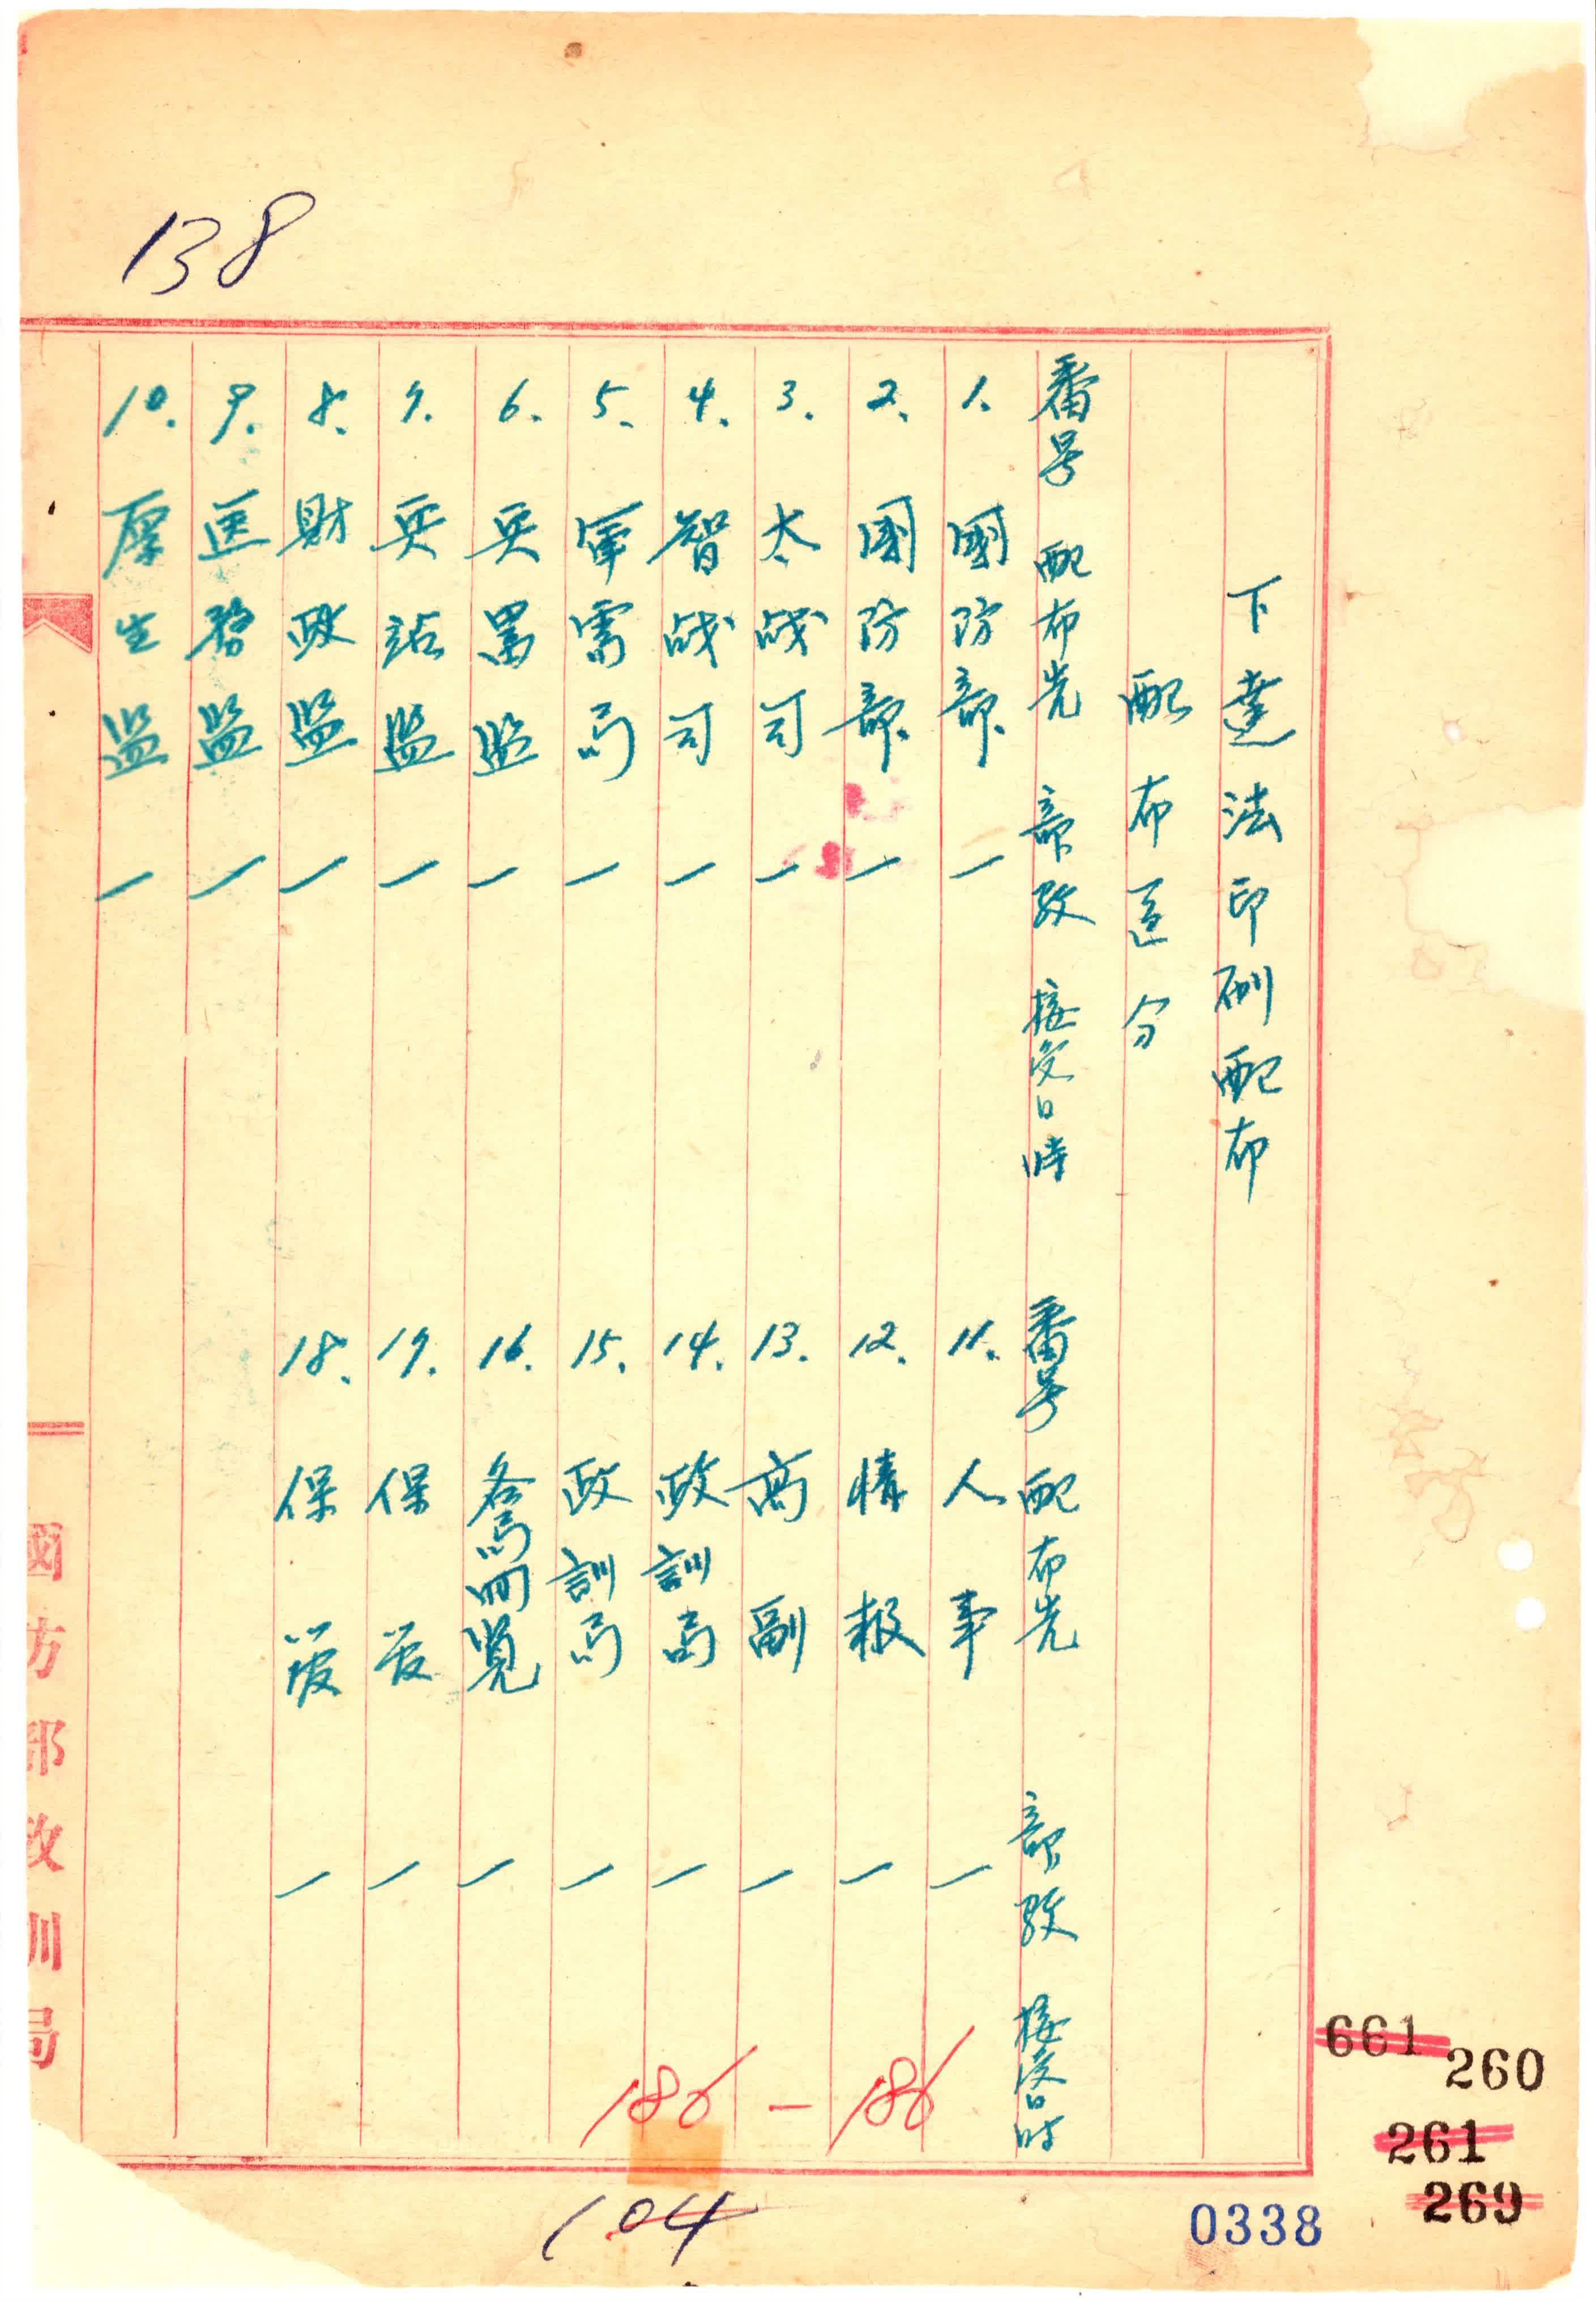 138
下達法印刷配布
配布區分
番号 配布先 部数 接受日時
1. 國防部 一
2. 國防部 一
3. 大战司 一
4. 智战司 一
5. 軍需局 一
6. 兵器监 一
7. 兵站监 一
8. 財政监 一
9. 医務监 一
10. 厚生监 一
番号 配布先 部数 接受日时
11. 人事 一
12. 情報 一
13. 高副 一
14. 政訓局 一
15. 政訓局 一
16. 各局回覧 一
17. 保管 一
18. 保管 一
186 — 186
國防部政訓局
104
0338
661
260
261
269